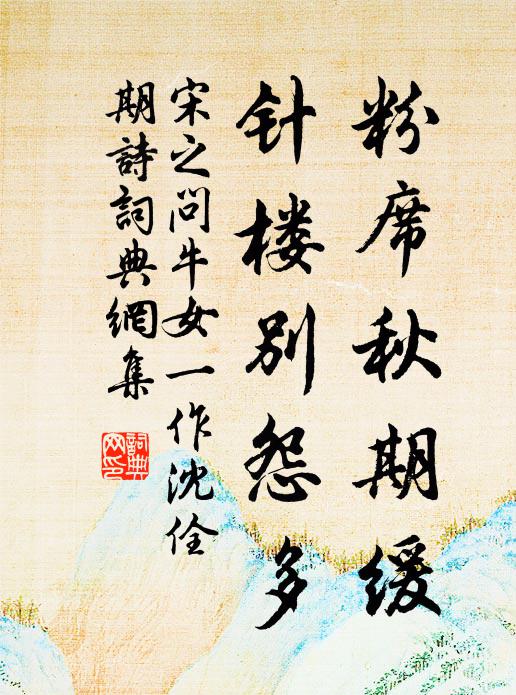 粉席秋期缓
针楼别怨多
宋之问牛女一作沈佺
期詩詞典網集
詞典網印